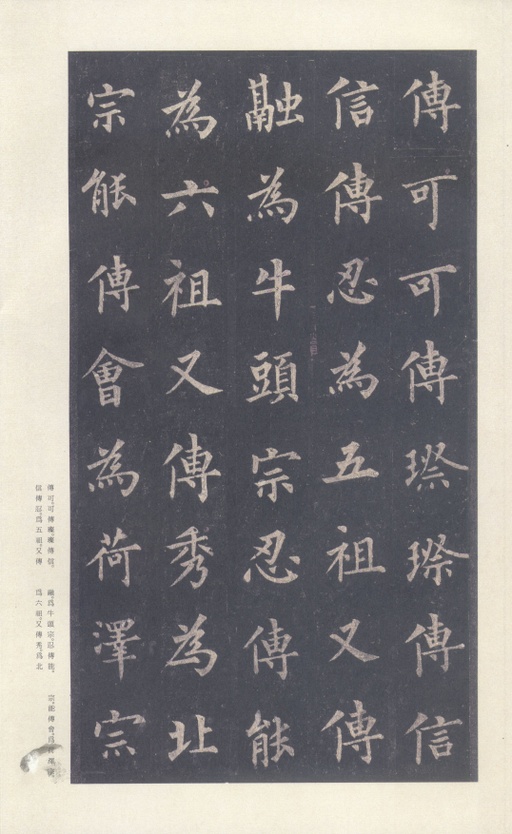 傳可可傳璨璨傳信
信傳忍為五祖又傳
融為牛頭宗忍傳能
為六祖又傳秀為北
宗能傳會為荷澤宗
傳可，可傳璨，璨傳信，
信傳忍，爲五祖，又傳
融，爲牛頭宗，忍傳能，
爲六祖，又傳秀，爲北
宗，能傳會，爲荷澤宗，